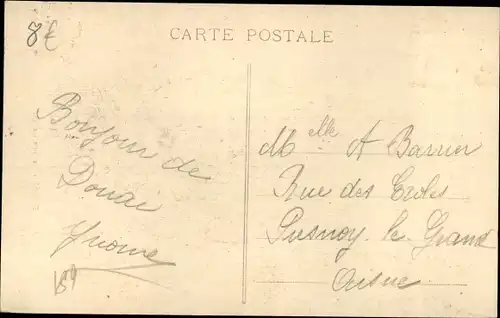 8€
CARTE POSTALE
Bonjour de
Douai
Yvonne
Mlle A Barrier
Rue des Ecoles
Fresnoy le Grand
Aisne